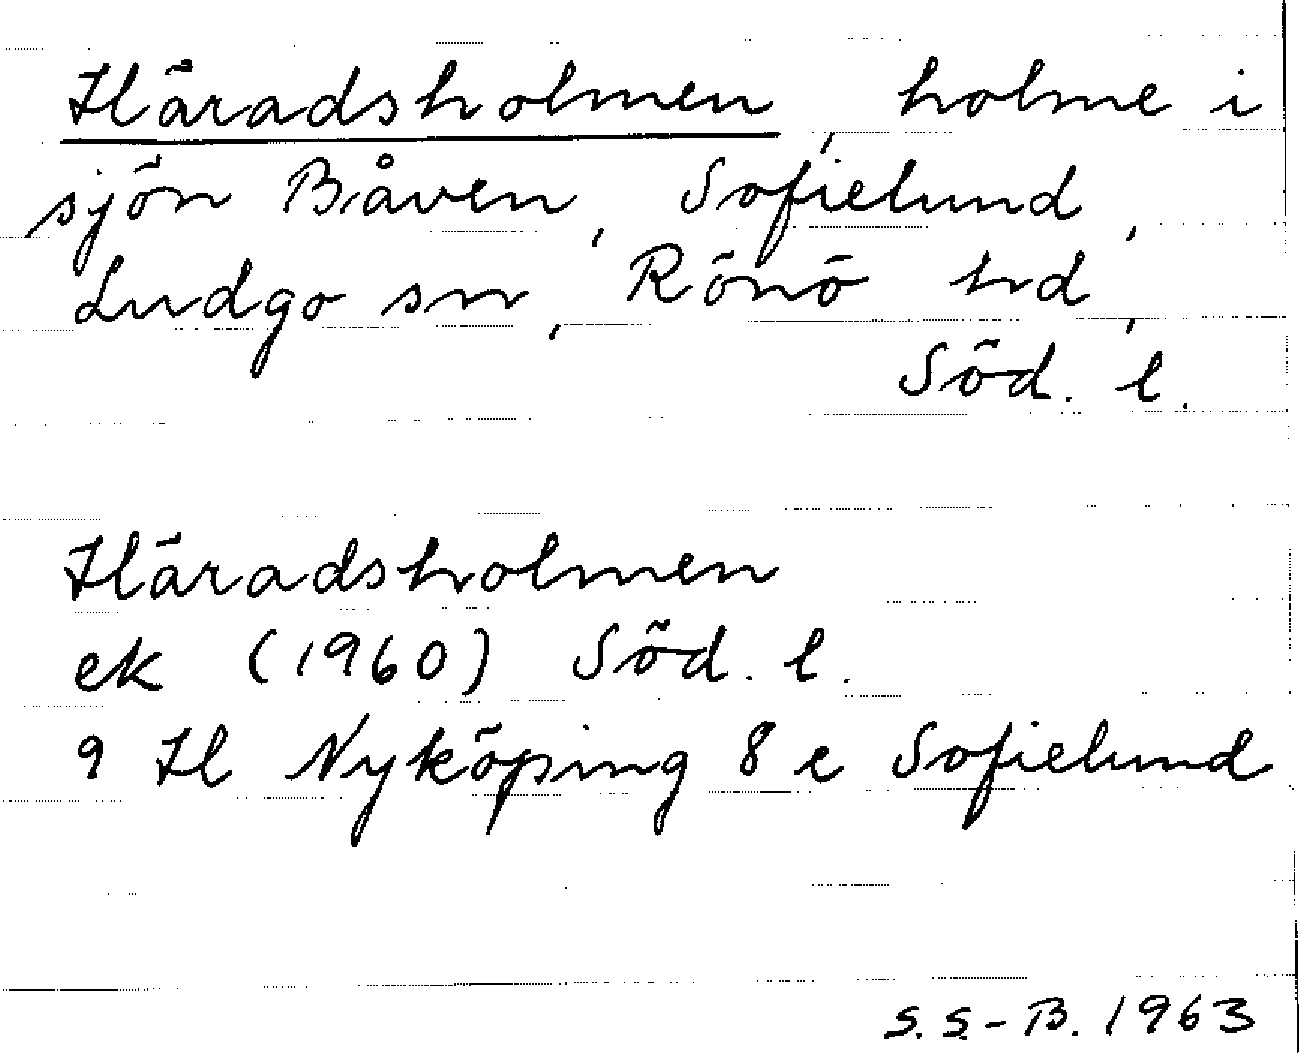 Häradsholmen, holme i
sjön Båven, Sofielund,
Ludgo sn, Rönö hd,
Söd. l.
Häradsholmen
ek (1960) Söd. l.
9 H Nyköping 8 e Sofielund
S. S.-B. 1963